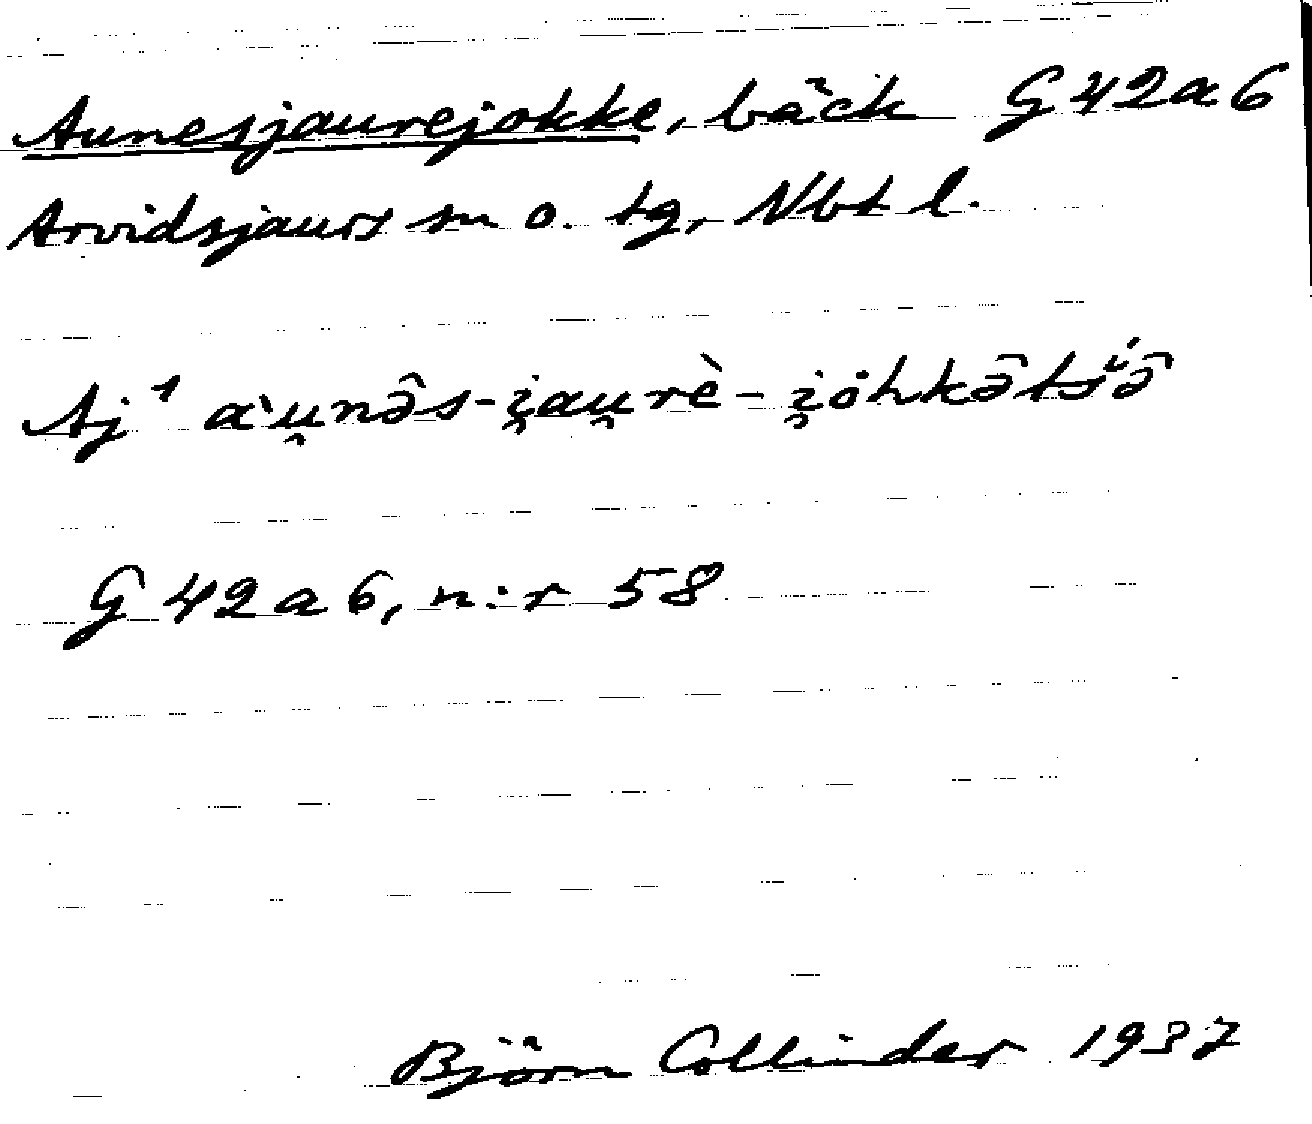 Aunesjaurejokke, bäck G42a6
Arvidsjaurs sn o. tg, Nbt l.
Aj¹ a̍u̯nə̑s-i̯au̯rè-i̯å̍hkə̑ts̍ə̑
G 42 a 6, n:r 58
Björn Collinder 1937